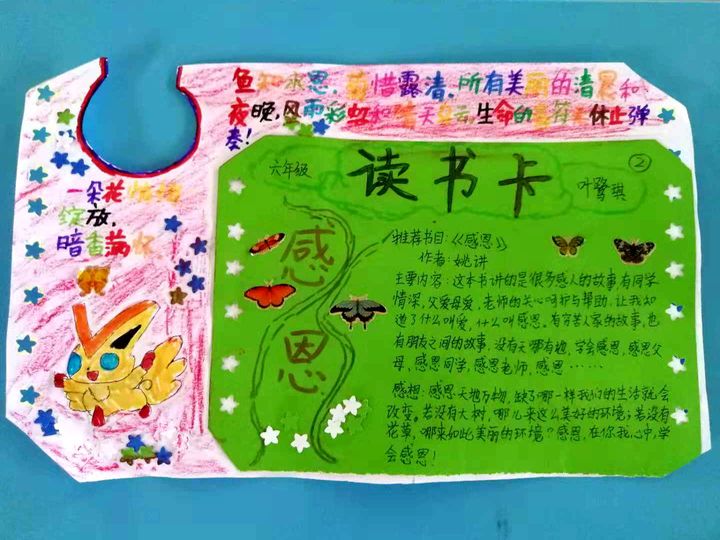 鱼知水恩,惜露清,所有美丽的清晨和
夜晚,风雨彩虹和天云,生命的休止弹
奏!
一朵花
绽放,
暗香满怀.
六年级
读书卡
②
叶鹭琪
感恩
推荐书目:《感恩》
作者:姚讲
主要内容:这本书讲的是很多感人的故事有同学
情深,父爱母爱,老师的关心呵护与帮助,让我知
道了什么叫爱,什么叫感恩。有穷苦人家的故事,也
有朋友之间的故事,没有天哪有地,学会感恩,感恩父
母,感恩同学,感恩老师,感恩……
感想:感恩天地万物,缺了哪一样我们的生活就会
改变。若没有大树,哪儿来这么美好的环境;若没有
花草,哪来如此美丽的环境?感恩,在你我心中,学
会感恩!